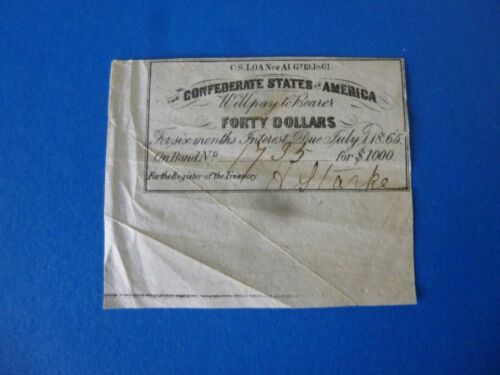 C.S. LOAN OF AUGT 19, 1861.
THE CONFEDERATE STATES OF AMERICA
Will pay to Bearer
FORTY DOLLARS
For six months Interest Due July 1, 1865.
On Bond No 1735 for $1000.
For the Register of the Treasury A Starke